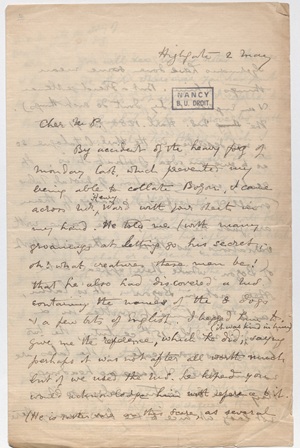 Highgate 2 May
NANCY
B. U. DROIT.
Cher M. P.
By accident of the heavy fog of
Monday last, which prevented my
being able to collate Bozon, I came
across Mr Henry Ward with your sheets in
my hand. He told me with many
groanings at letting go his secret,
oh! what creatures these men be!
that he also had discovered a
containing the names of the 3 Dogs
& a few bits of English. I begged him to
give me the reference, which he did, saying
(it was kind in him)
perhaps it was not after all worth much
but if we used the he hoped you
would acknowledge him with reference to it.
(He is on this, as several